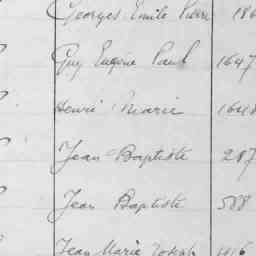 Georges Emile Pierre 186
Guy Eugène Paul 1647
Henri Marie 1648
Jean-Baptiste 287
Jean Baptiste 588
Jean Marie Joseph